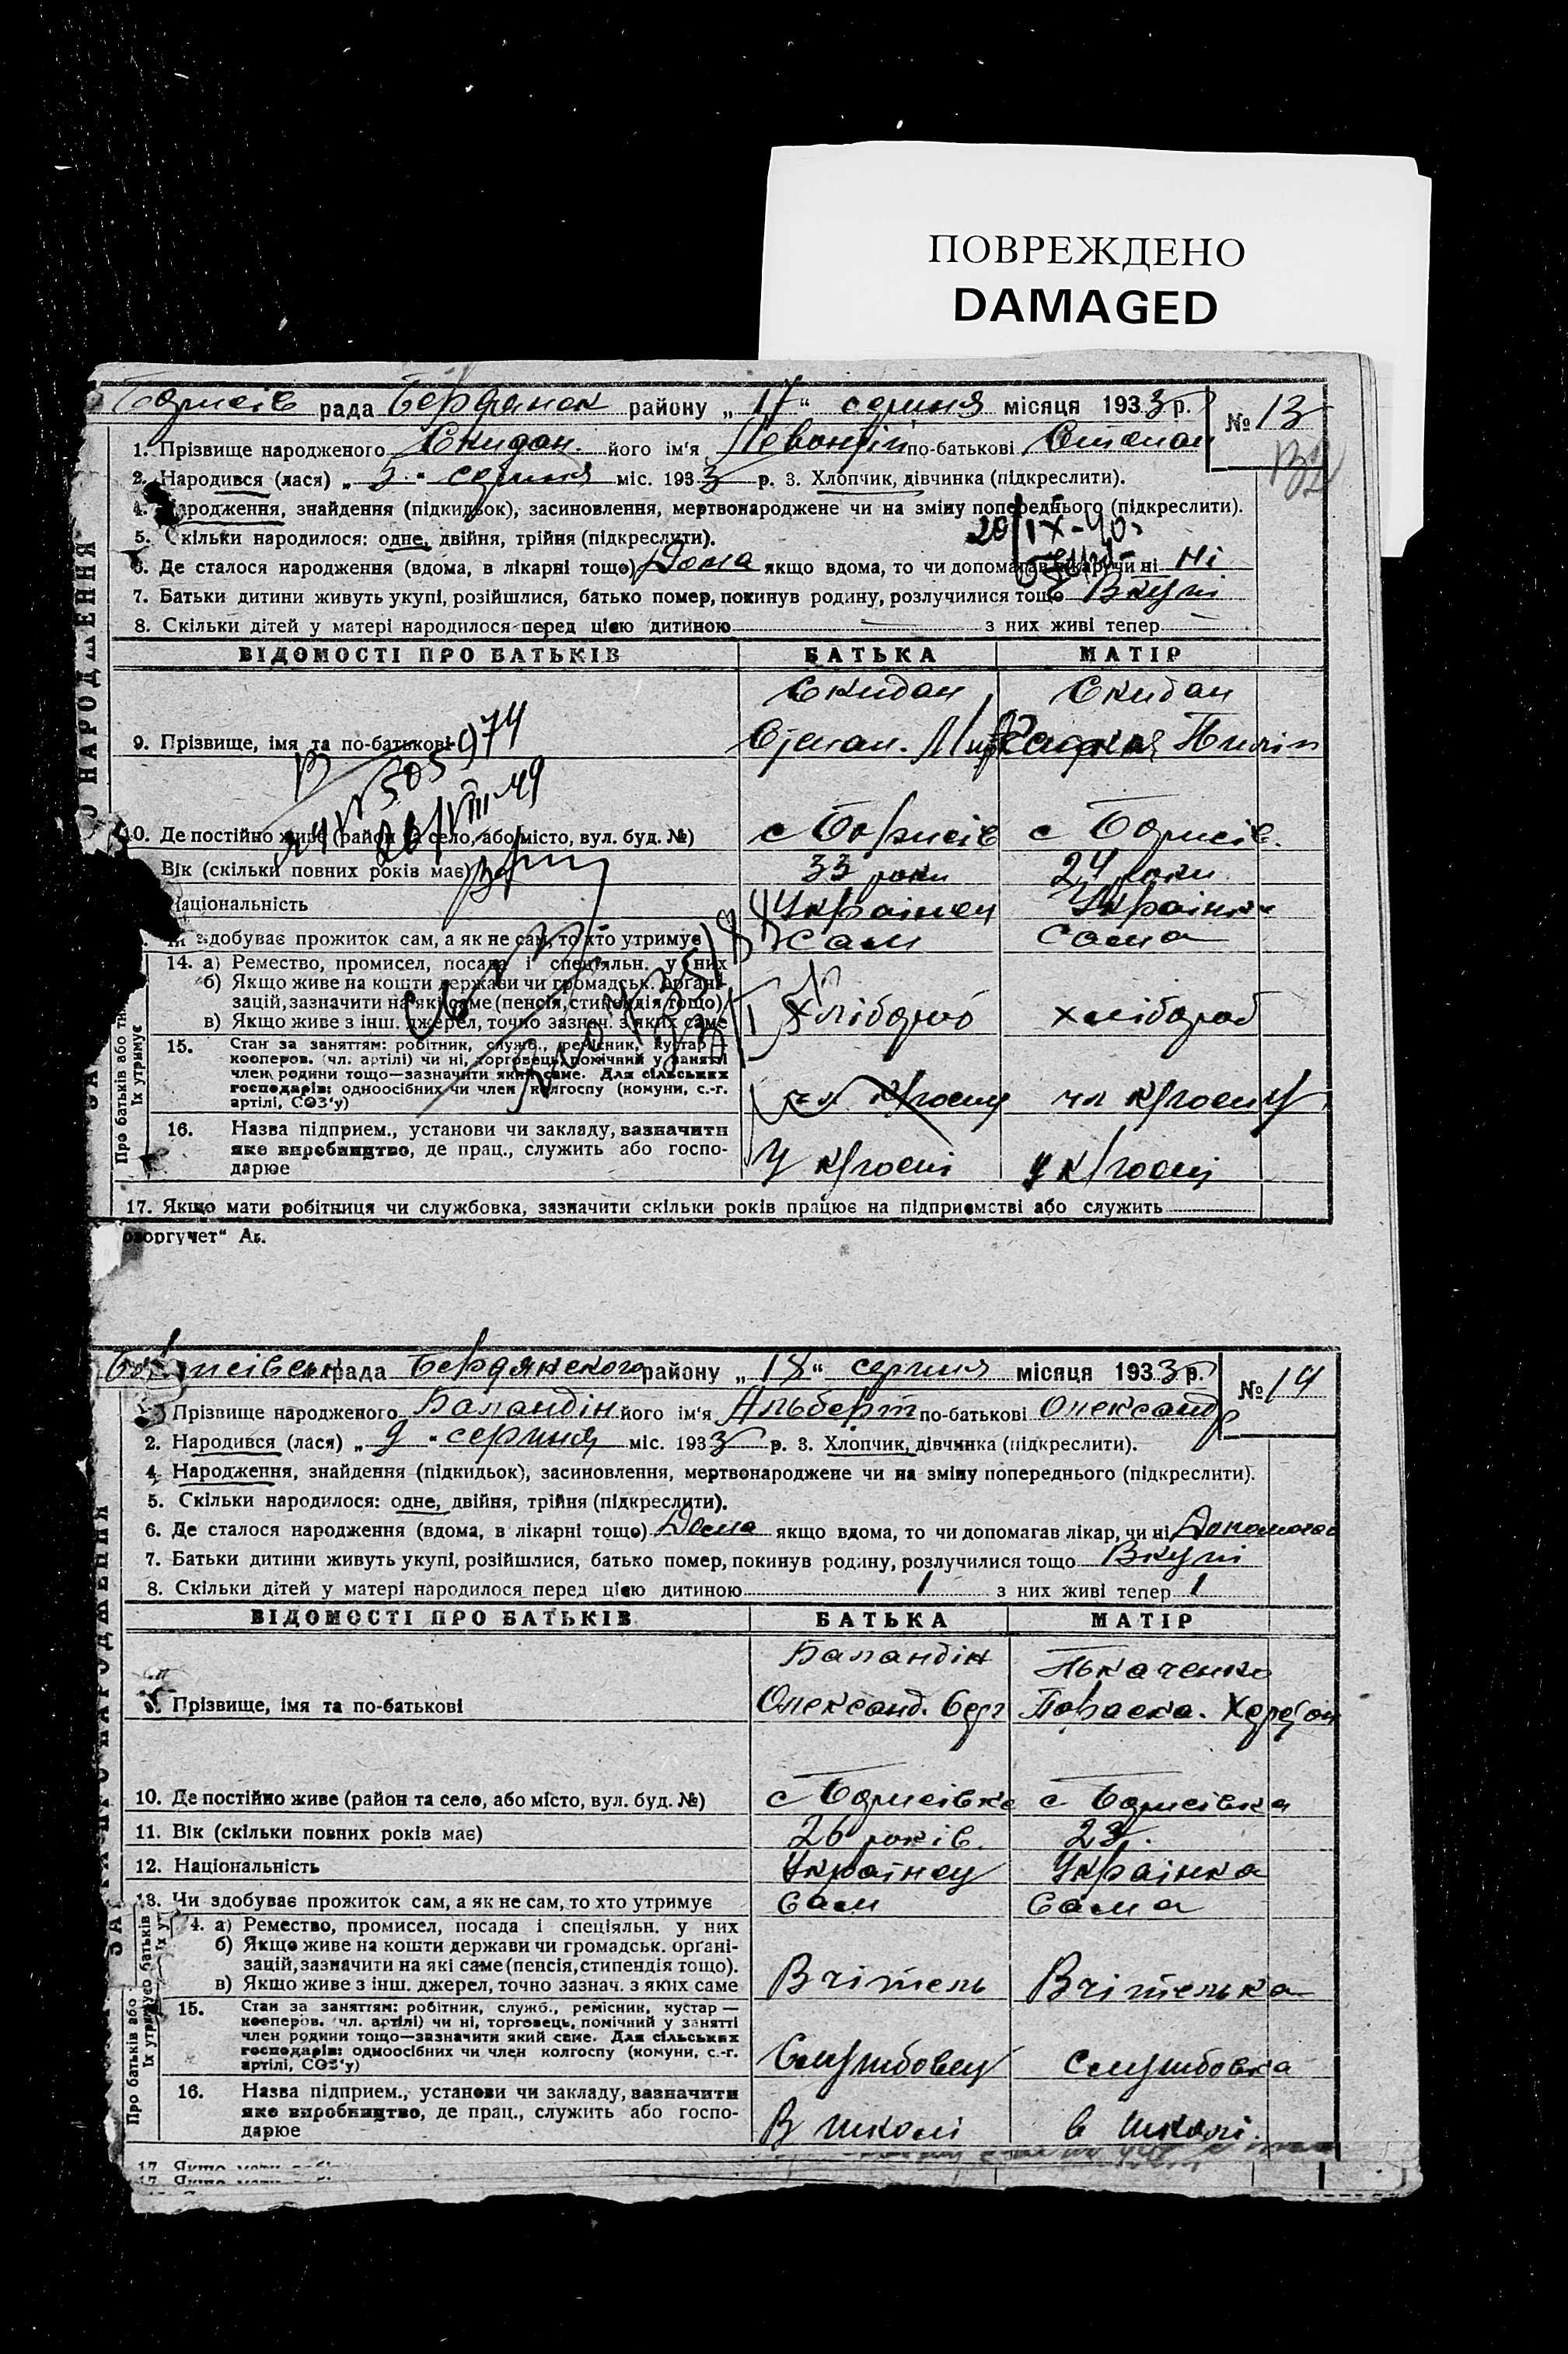 ПОВРЕЖДЕНО
DAMAGED
Борисів рада Бердянск району „ 17 “ серпня місяця 1933 р. № 13
1. Прізвище народженого Скидан його ім'я Левонтій по-батькові Степан
2. Народився (лася) „ 5 “ серпня міс. 1933 р. 3. Хлопчик, дівчинка (підкреслити).
4. Народження, знайдення (підкидьок), засиновлення, мертвонароджене чи на зміну попереднього (підкреслити).
20/IX-40
5. Скільки народилося: одне, двійня, трійня (підкреслити).
6. Де сталося народження (вдома, в лікарні тощо) Дома якщо вдома, то чи допомагав лікар, чи ні Ні
7. Батьки дитини живуть укупі, розійшлися, батько помер, покинув родину, розлучилися тощо Вкупі
8. Скільки дітей у матері народилося перед цією дитиною з них живі тепер
О НАРОДЖЕННЯ
ВІДОМОСТІ ПРО БАТЬКІВ БАТЬКА МАТІР
Скидан Скидан
9. Прізвище, імя та по-батькові Степан. Пилип
974
505
26/VIII-49
10. Де постійно живе (район та село, або місто, вул. буд. №) с Борисів с Борисів.
Вік (скільки повних років має) 33 роки 24 роки
Національність Українец Українка
Чи здобуває прожиток сам, а як не сам, то хто утримує Сам Сама
Про батьків або тих, їх утримує
14. а) Ремество, промисел, посада і спеціяльн. у них
б) Якщо живе на кошти держави чи громадськ. органі-
зацій, зазначити на які саме (пенсія, стипендія тощо)
в) Якщо живе з інш. джерел, точно зазнач. з яких саме Хлібороб хлібороб
15. Стан за заняттям: робітник, служб., ремісник, кустар —
кооперов. (чл. артілі) чи ні, торговець, помічний у занятті
член родини тощо—зазначити який саме. Для сільських
господарів: одноосібних чи член колгоспу (комуни, с.-г.
артілі, СОЗ'у) чл к/госпу
16. Назва підприем., установи чи закладу, зазначити
яке виробництво, де прац., служить або госпо-
дарює У к/госпі у к/госпі
17. Якщо мати робітниця чи службовка, зазначити скільки років працює на підприємстві або служить
оргучет“ Аг.
Борисівськ рада Бердянского району „ 18 “ серпня місяця 1933 р. № 14
Прізвище народженого Баландін його ім'я Альберт по-батькові Олександр
2. Народився (лася) „ 9 “ серпня міс. 1933 р. 3. Хлопчик, дівчинка (підкреслити).
4. Народження, знайдення (підкидьок), засиновлення, мертвонароджене чи на зміну попереднього (підкреслити).
5. Скільки народилося: одне, двійня, трійня (підкреслити).
6. Де сталося народження (вдома, в лікарні тощо) Дома якщо вдома, то чи допомагав лікар, чи ні Допомогав
7. Батьки дитини живуть укупі, розійшлися, батько помер, покинув родину, розлучилися тощо Вкупі
8. Скільки дітей у матері народилося перед цією дитиною 1 з них живі тепер 1
ПРО НАРОДЖЕННЯ
ВІДОМОСТІ ПРО БАТЬКІВ БАТЬКА МАТІР
Баландін Ткаченко
9. Прізвище, імя та по-батькові Олександ. Параска.
10. Де постійно живе (район та село, або місто, вул. буд. №) с Борисівка с Борисівка
11. Вік (скільки повних років має) 26 років. 23.
12. Національність Українец Українка
13. Чи здобуває прожиток сам, а як не сам, то хто утримує Сам Сама
14. а) Ремество, промисел, посада і спеціяльн. у них
б) Якщо живе на кошти держави чи громадськ. органі-
зацій, зазначити на які саме (пенсія, стипендія тощо).
в) Якщо живе з інш. джерел, точно зазнач. з яких саме Вчітель Вчітелька
15. Стан за заняттям: робітник, служб., ремісник, кустар —
кооперов. чл. артілі) чи ні, торговець, помічний у занятті
член родини тощо—зазначити який саме. Для сільських
господарів: одноосібних чи член колгоспу (комуни, с.-г.
артілі, СОЗ'у) Службовец службовка
16. Назва підприем., установи чи закладу, зазначити
яке виробництво, де прац., служить або госпо-
дарює В школі в школі.
17. Якщо мати
17. Якщо мати